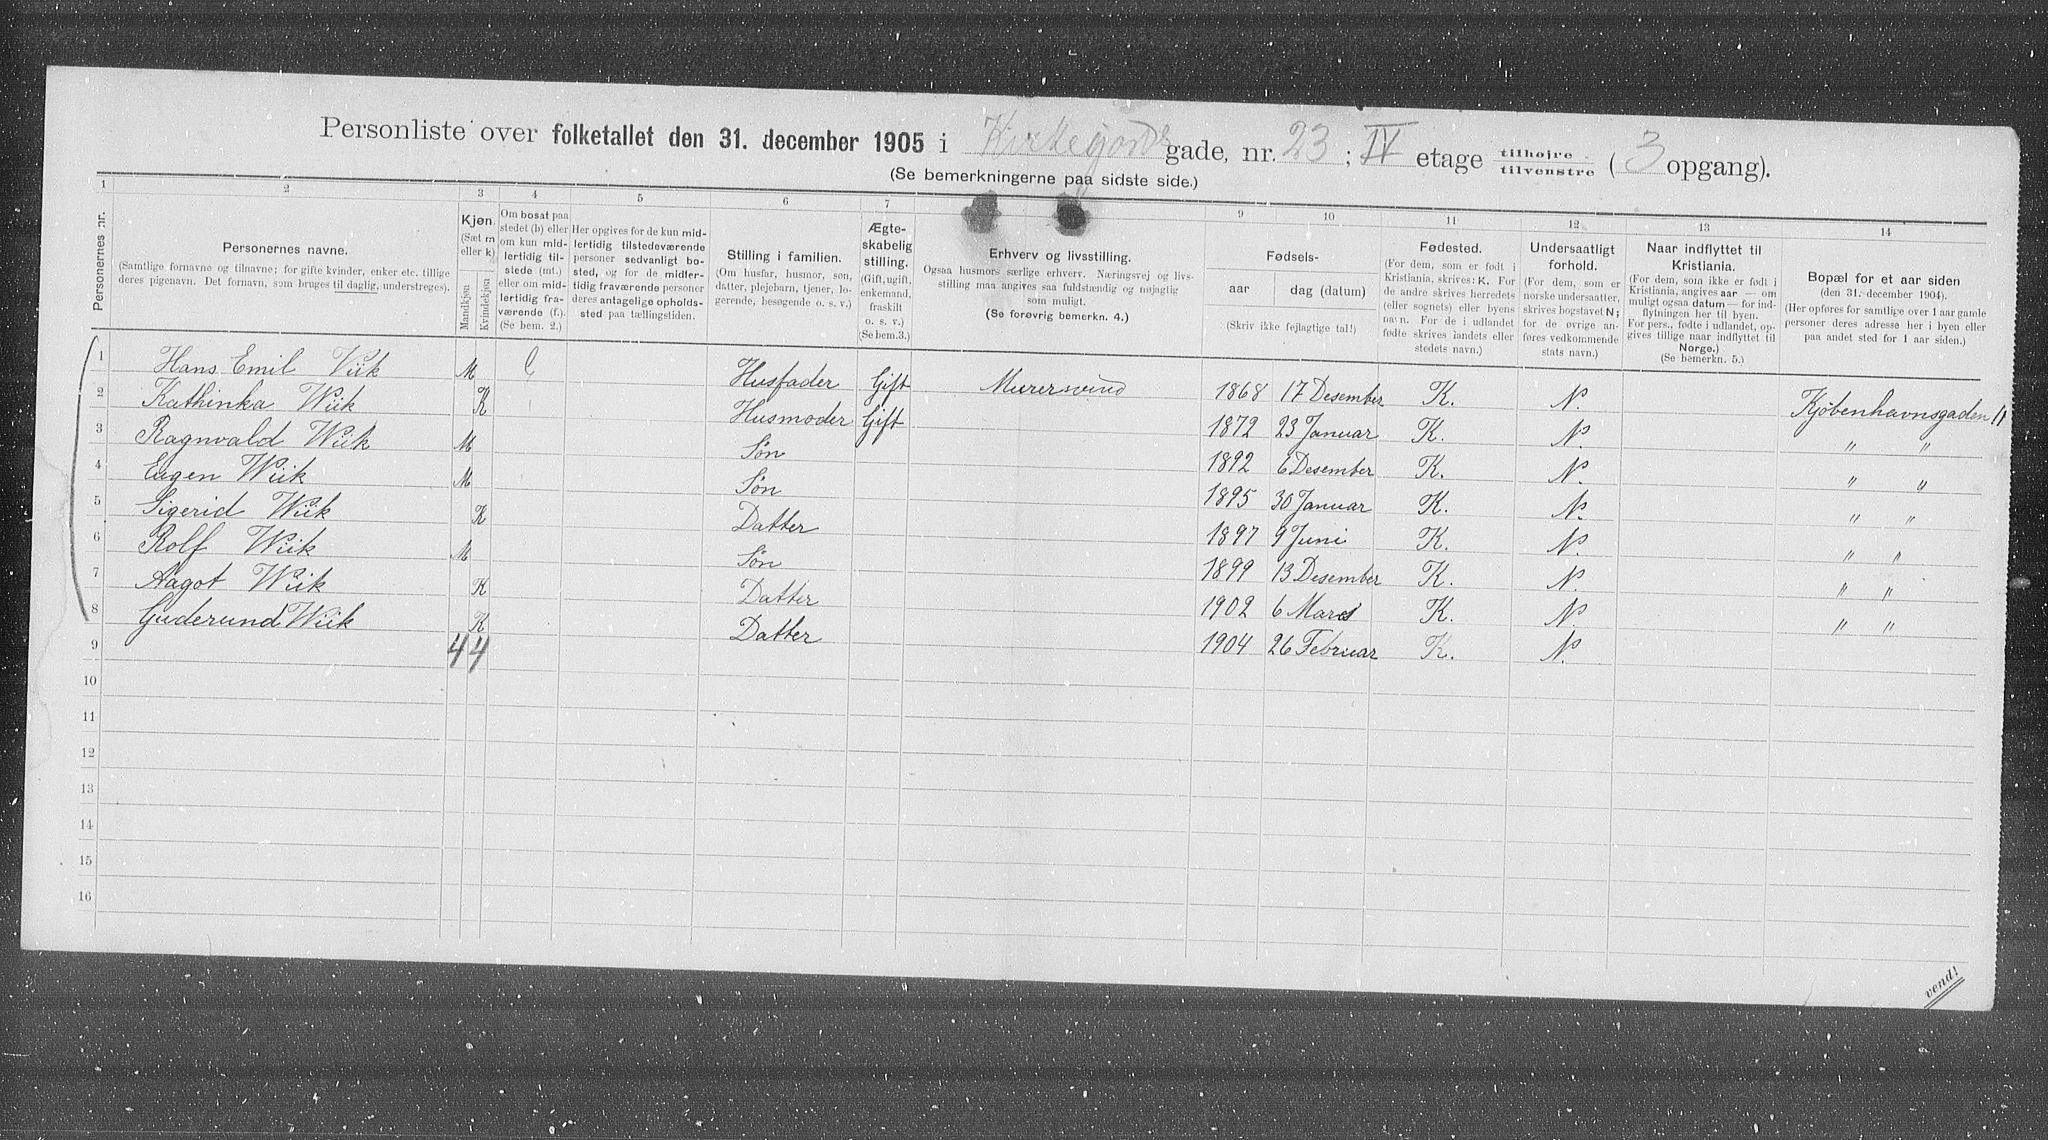 Personliste over folketallet den 31. december 1905 i Kirkegårds gade, nr. 23 ; IV etage tilhøire / tilvenstre ( 3 opgang).
(Se bemerkningerne paa sidste side.)
1 2 3 4 5 6 7 9 10 11 12 13 14
Personernes nr.
Personernes navne.
(Samtlige fornavne og tilnavne; for gifte kvinder, enker etc. tillige
deres pigenavn. Det fornavn, som bruges til daglig, understreges).
Kjøn.
(Sæt m
eller k)
Mandkjøn
Kvindekjøn
Om bosat paa
stedet (b) eller
om kun mid-
lertidig til-
stede (mt.)
eller om mid-
lertidig fra-
værende (f.).
(Se bem. 2.)
Her opgives for de kun mid-
lertidig tilstedeværende
personer sedvanligt bo-
sted, og for de midler-
tidig fraværende personer
deres antagelige opholds-
sted paa tællingstiden.
Stilling i familien.
(Om husfar, husmor, søn,
datter, plejebarn, tjener, lo-
gerende, besøgende o. s. v.)
Ægte-
skabelig
stilling.
(Gift, ugift,
enkemand,
fraskilt
o. s. v.)
(Se bem.3.)
Erhverv og livsstilling.
Ogsaa husmors særlige erhverv. Næringsvej og livs-
stilling maa angives saa fuldstændig og nøjagtig
som muligt.
(Se forøvrig bemerkn. 4.)
Fødsels-
aar dag (datum)
(Skriv ikke fejlagtige tal!)
Fødested.
(For dem, som er født i
Kristiania, skrives: K. For
de andre skrives herredets
(eller sognets) eller byens
navn. For de i udlandet
fødte skrives landets eller
stedets navn.)
Undersaatligt
forhold.
(For dem, som er
norske undersaatter,
skrives bogstavet N;
for de øvrige an-
føres vedkommende
stats navn.)
Naar indflyttet til
Kristiania.
(For dem, som ikke er født i
Kristiania, angives aar — om
muligt ogsaa datum — for ind-
flytningen her til byen.
For pers., fødte i udlandet, op-
gives tillige naar indflyttet til
Norge.)
(Se bemerkn. 5.)
Bopæl for et aar siden
(den 31. december 1904).
(Her opføres for samtlige over 1 aar gamle
personer deres adresse her i byen eller
paa andet sted for 1 aar siden.)
1 Hans Emil Viik M Husfader Gift Murersvend 1868 17 Desember K. N. Kjøbenhavnsgaden 11
2 Kathinka Wiik K Husmoder Gift 1872 23 Januar K. N. " "
3 Ragnvald Wiik M Søn 1892 6 Desember K. N. " "
4 Eugen Wiik M Søn 1895 30 Januar K. N. " "
5 Sigerid Wiik K Datter 1897 9 Juni K. N. " "
6 Rolf Wiik M Søn 1899 13 Desember K. N. " "
7 Aagot Wiik K Datter 1902 6 Mars K. N. " "
8 Guderund Wiik K Datter 1904 26 Februar K. N.
9 4 4
10
11
12
13
14
15
16
vend!